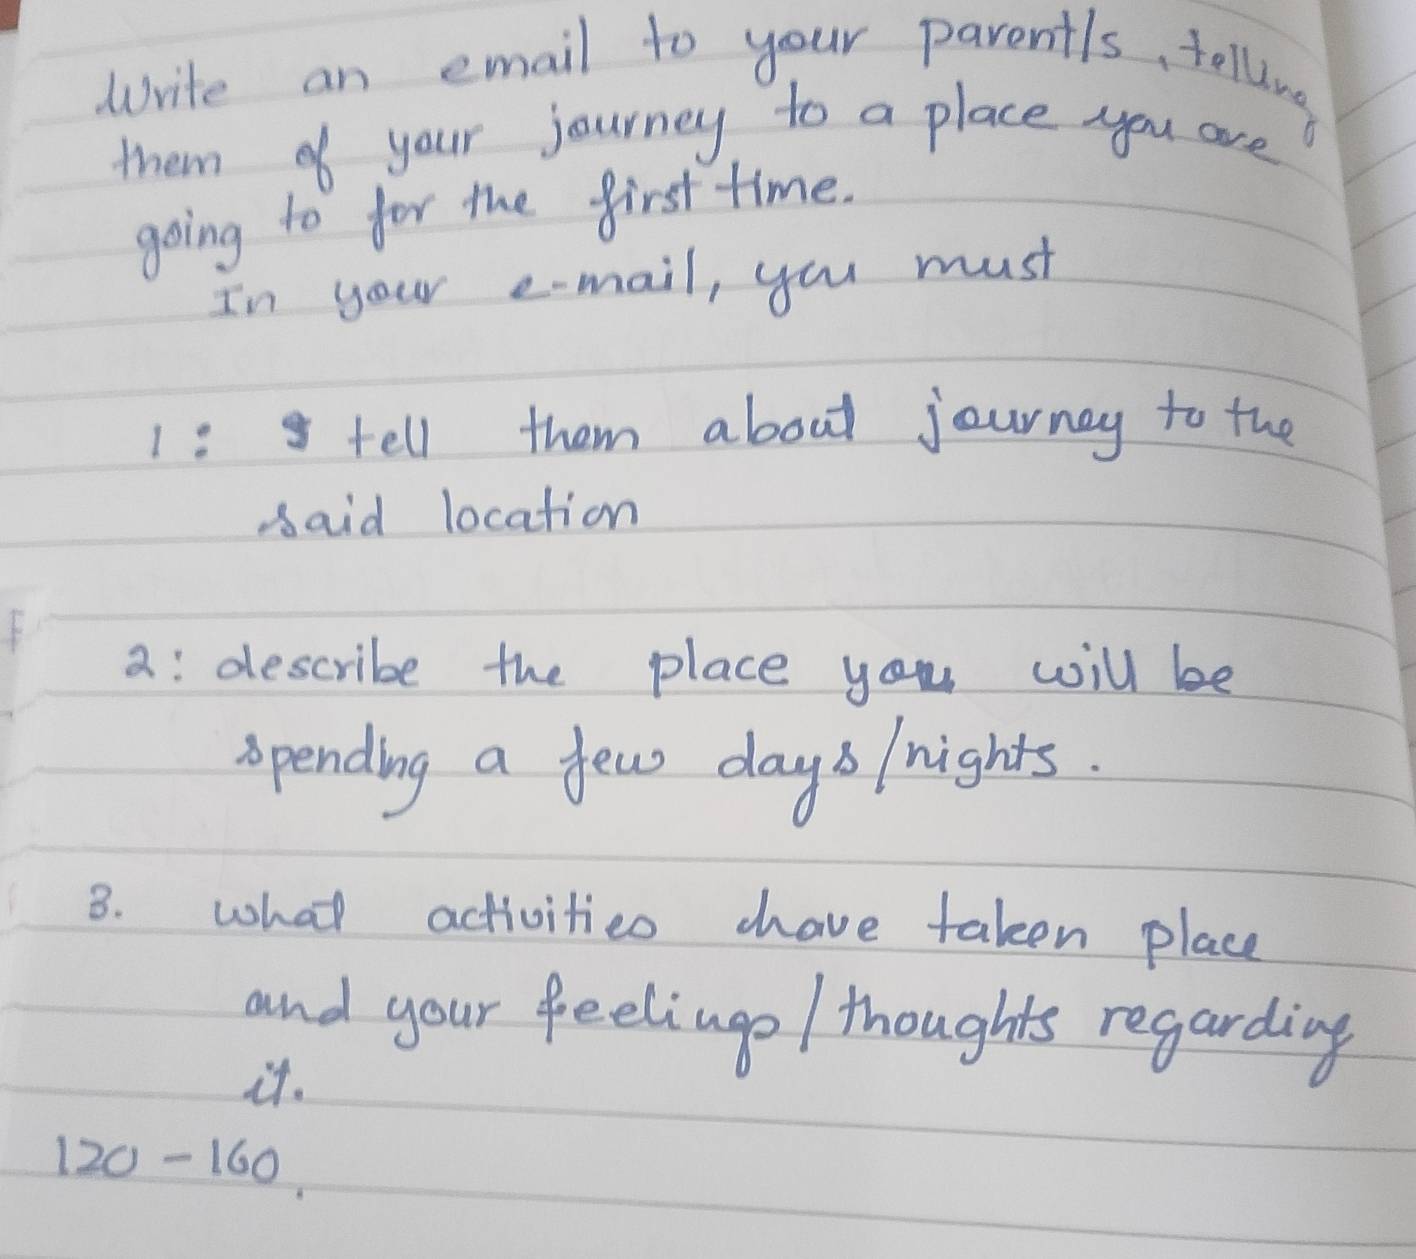 Write an email to your parent/s, telling
them of your journey to a place you are
going to for the first time.
In your e-mail, you must
1: tell them about journey to the
said location
2: describe the place you will be
spending a few days/nights.
3. what activities have taken place
and your feelings/thoughts regarding
it.
120-160.